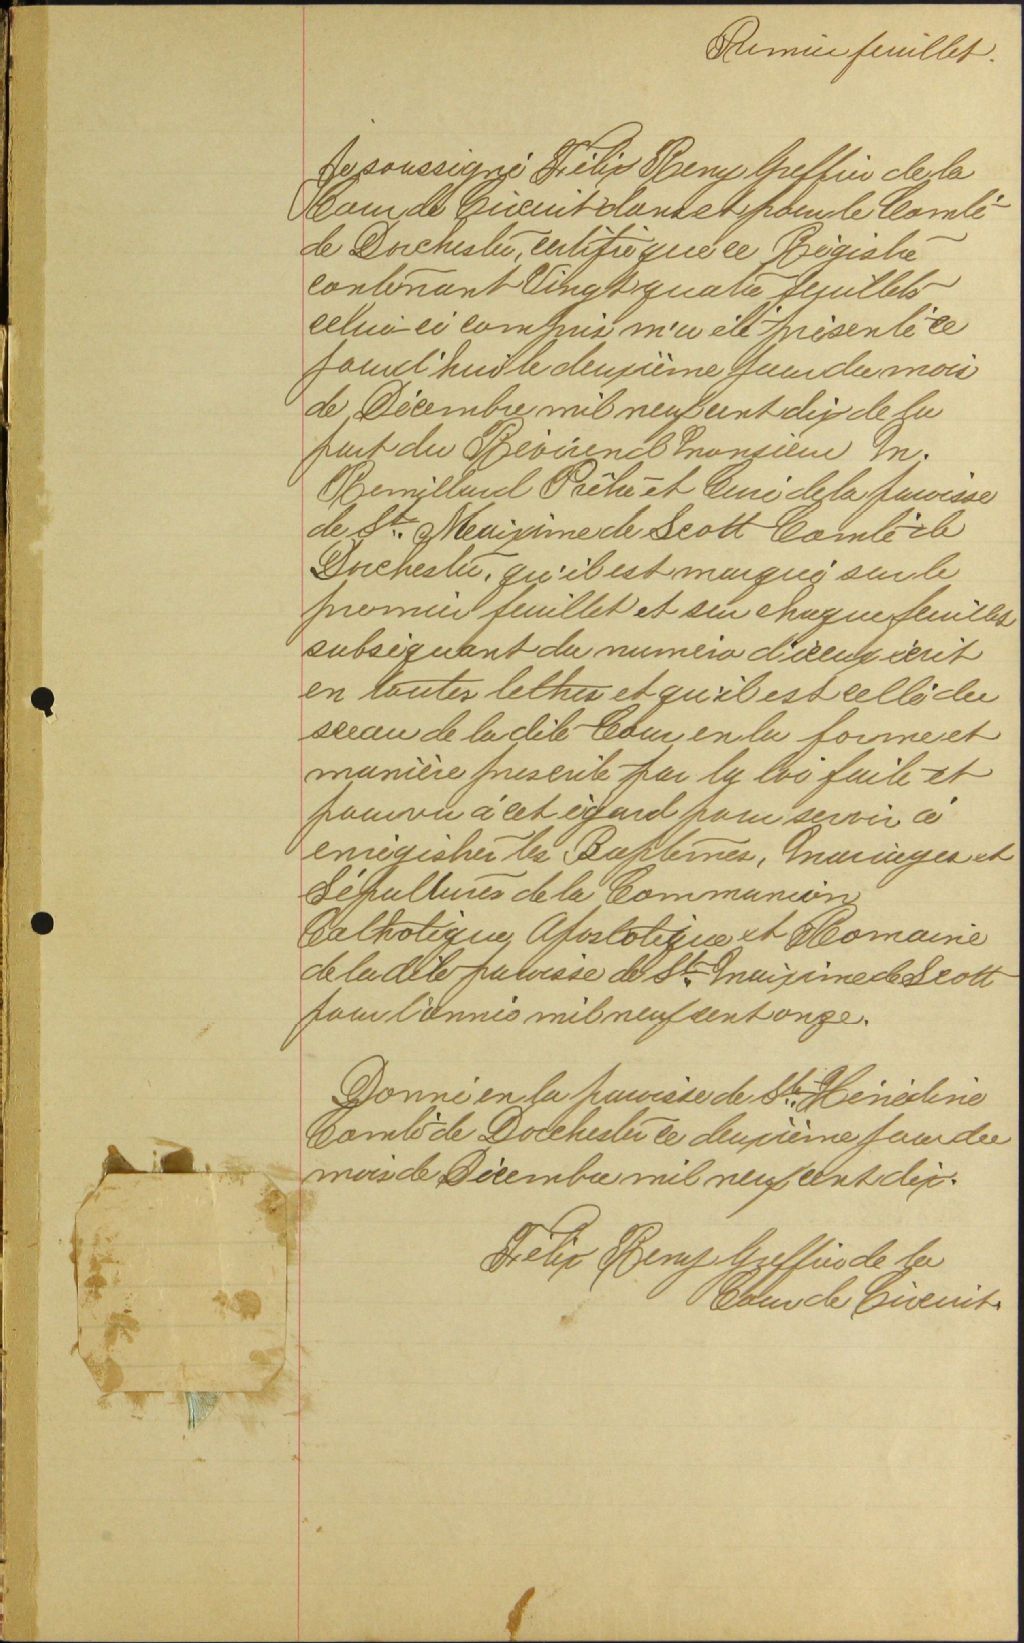 Premier feuillet.
Je soussigné Félix Remy Greffier de la
Cour de Circuit dans et pour le Comté
de Dorchester, certifie que ce Régistre
contenant Vingt quatre feuillets
celui-ci compris m'a été présenté ce
jourd'hui le deuxième jour du mois
de Décembre mil neuf cent dix de la
part du Révérend Monsieur M.
Remillard Prêtre et Curé de la paroisse
de St. Maxime de Scott Comté de
Dorchester, qu'il est marqué sur le
premier feuillet et sur chaque feuillet
subséquant du numéro d'iceux écrit
en toutes lettres et qu'il est cellé du
sceau de la dite Cour en la forme et
manière prescrite par la loi faite et
pourvu à cet égard pour servir à
enrégistrer les Baptêmes, Mariages et
Sépultures de la Communion
Catholique Apostolique et Romaine
de la dite paroisse de St. Maxime de Scott
pour l'année mil neuf cent onze.
Donné en la paroisse de Ste. Hénédine
Comté de Dorchester ce deuxième jour du
mois de Décembre mil neuf cent dix.
Félix Remy Greffier de la
Cour de Circuit.